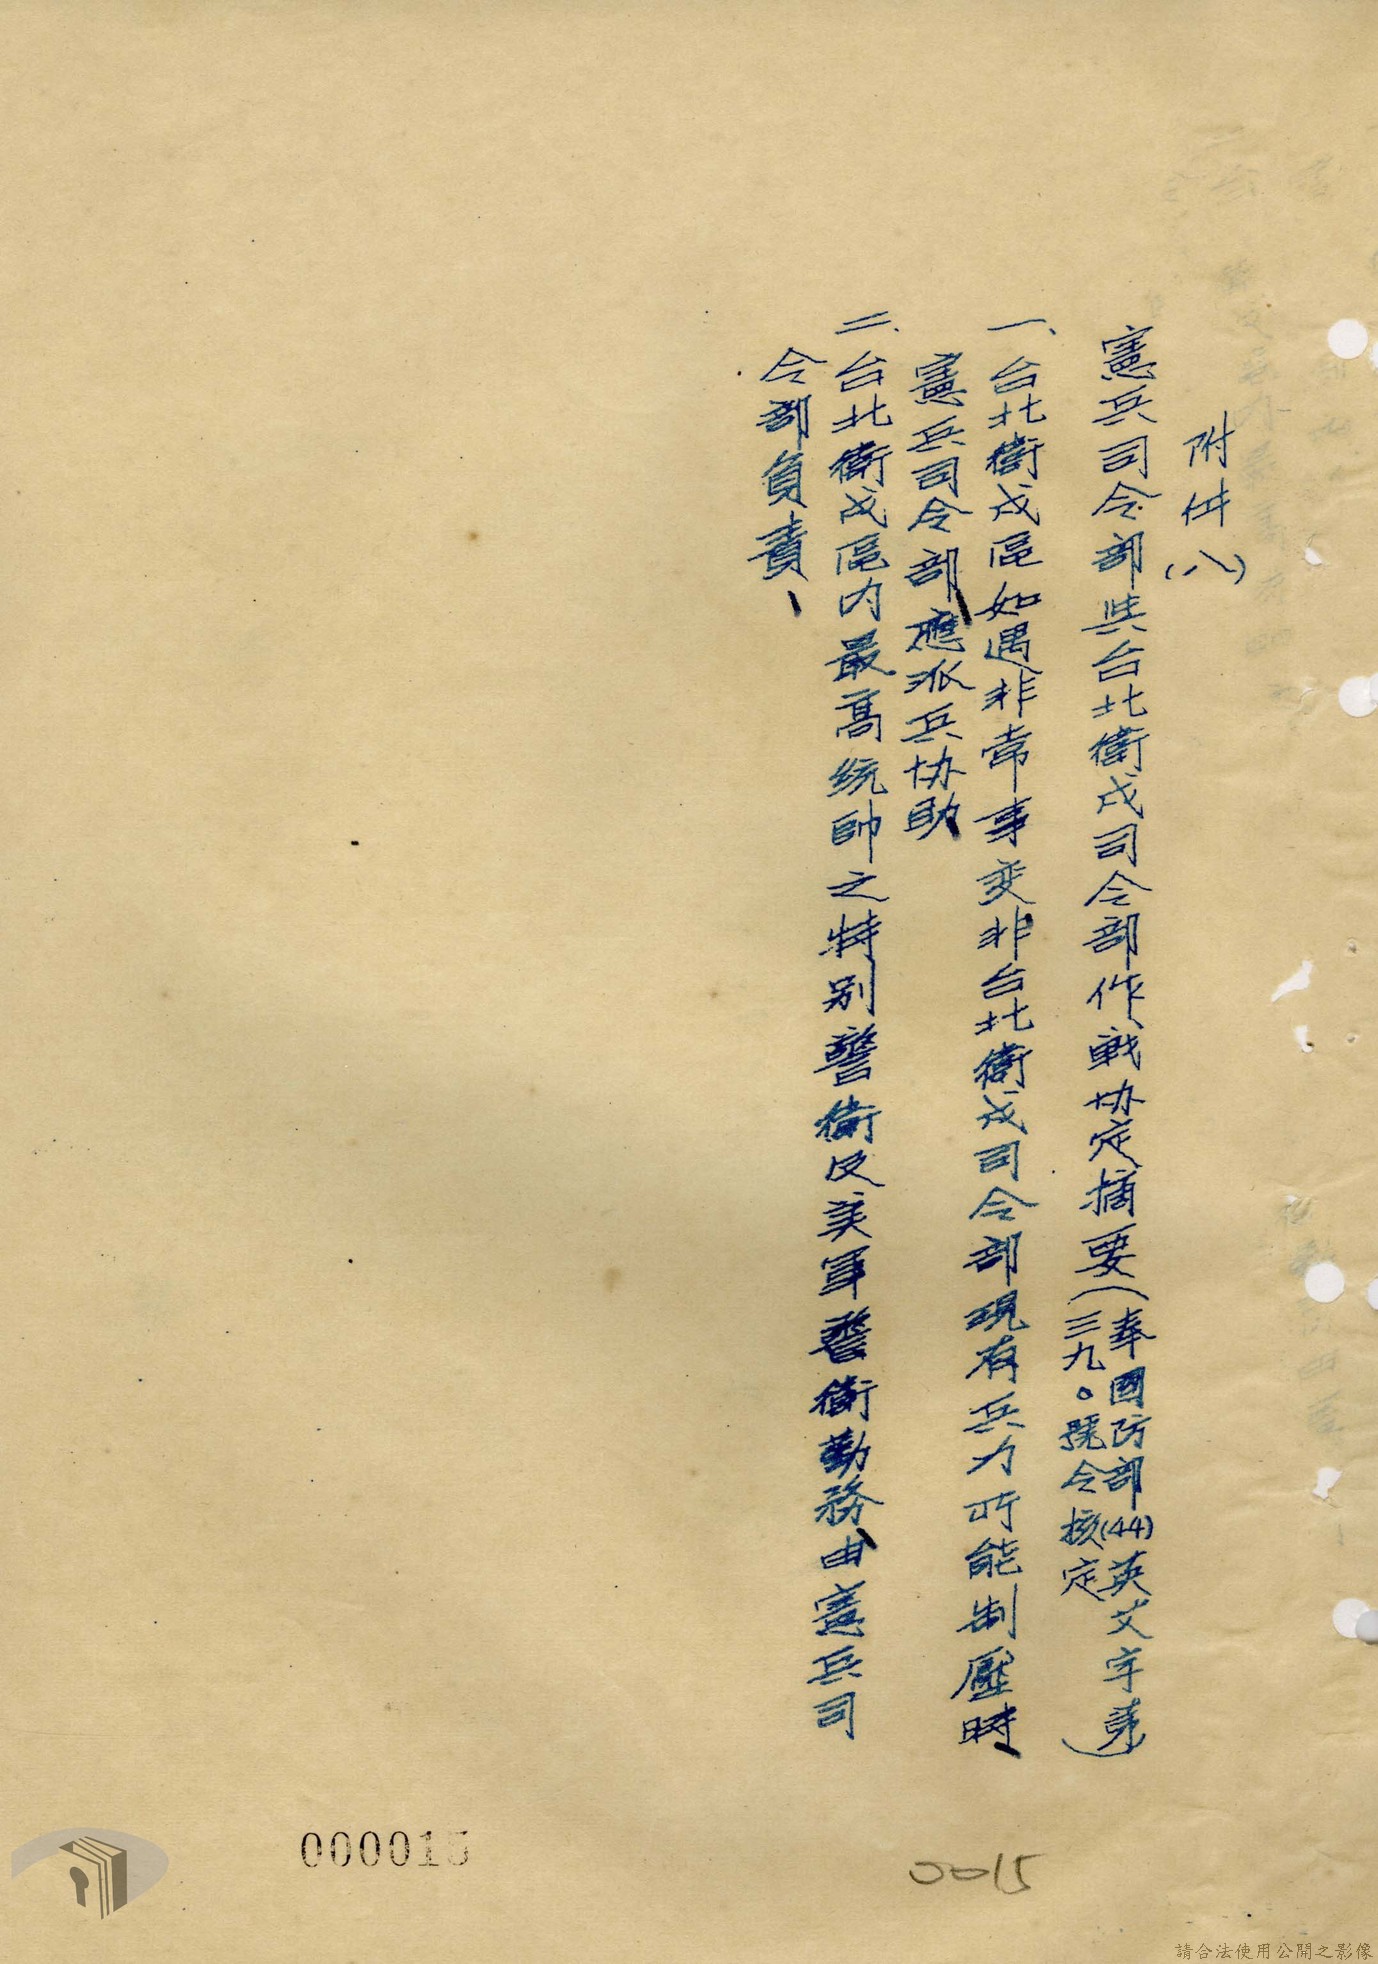 附件(八)
憲兵司令部與台北衛戍司令部作戰協定摘要(奉國防部(44)英艾字第
三九〇號令核定)
一、台北衛戍區如遇非常事变非台北衛戍司令部現有兵力所能制壓時、
憲兵司令部應派兵协助、
二、台北衛戍區內最高統帥之特別警衛及美軍警衛勤務、由憲兵司
令部負責、
000015
0015
請合法使用公開之影像